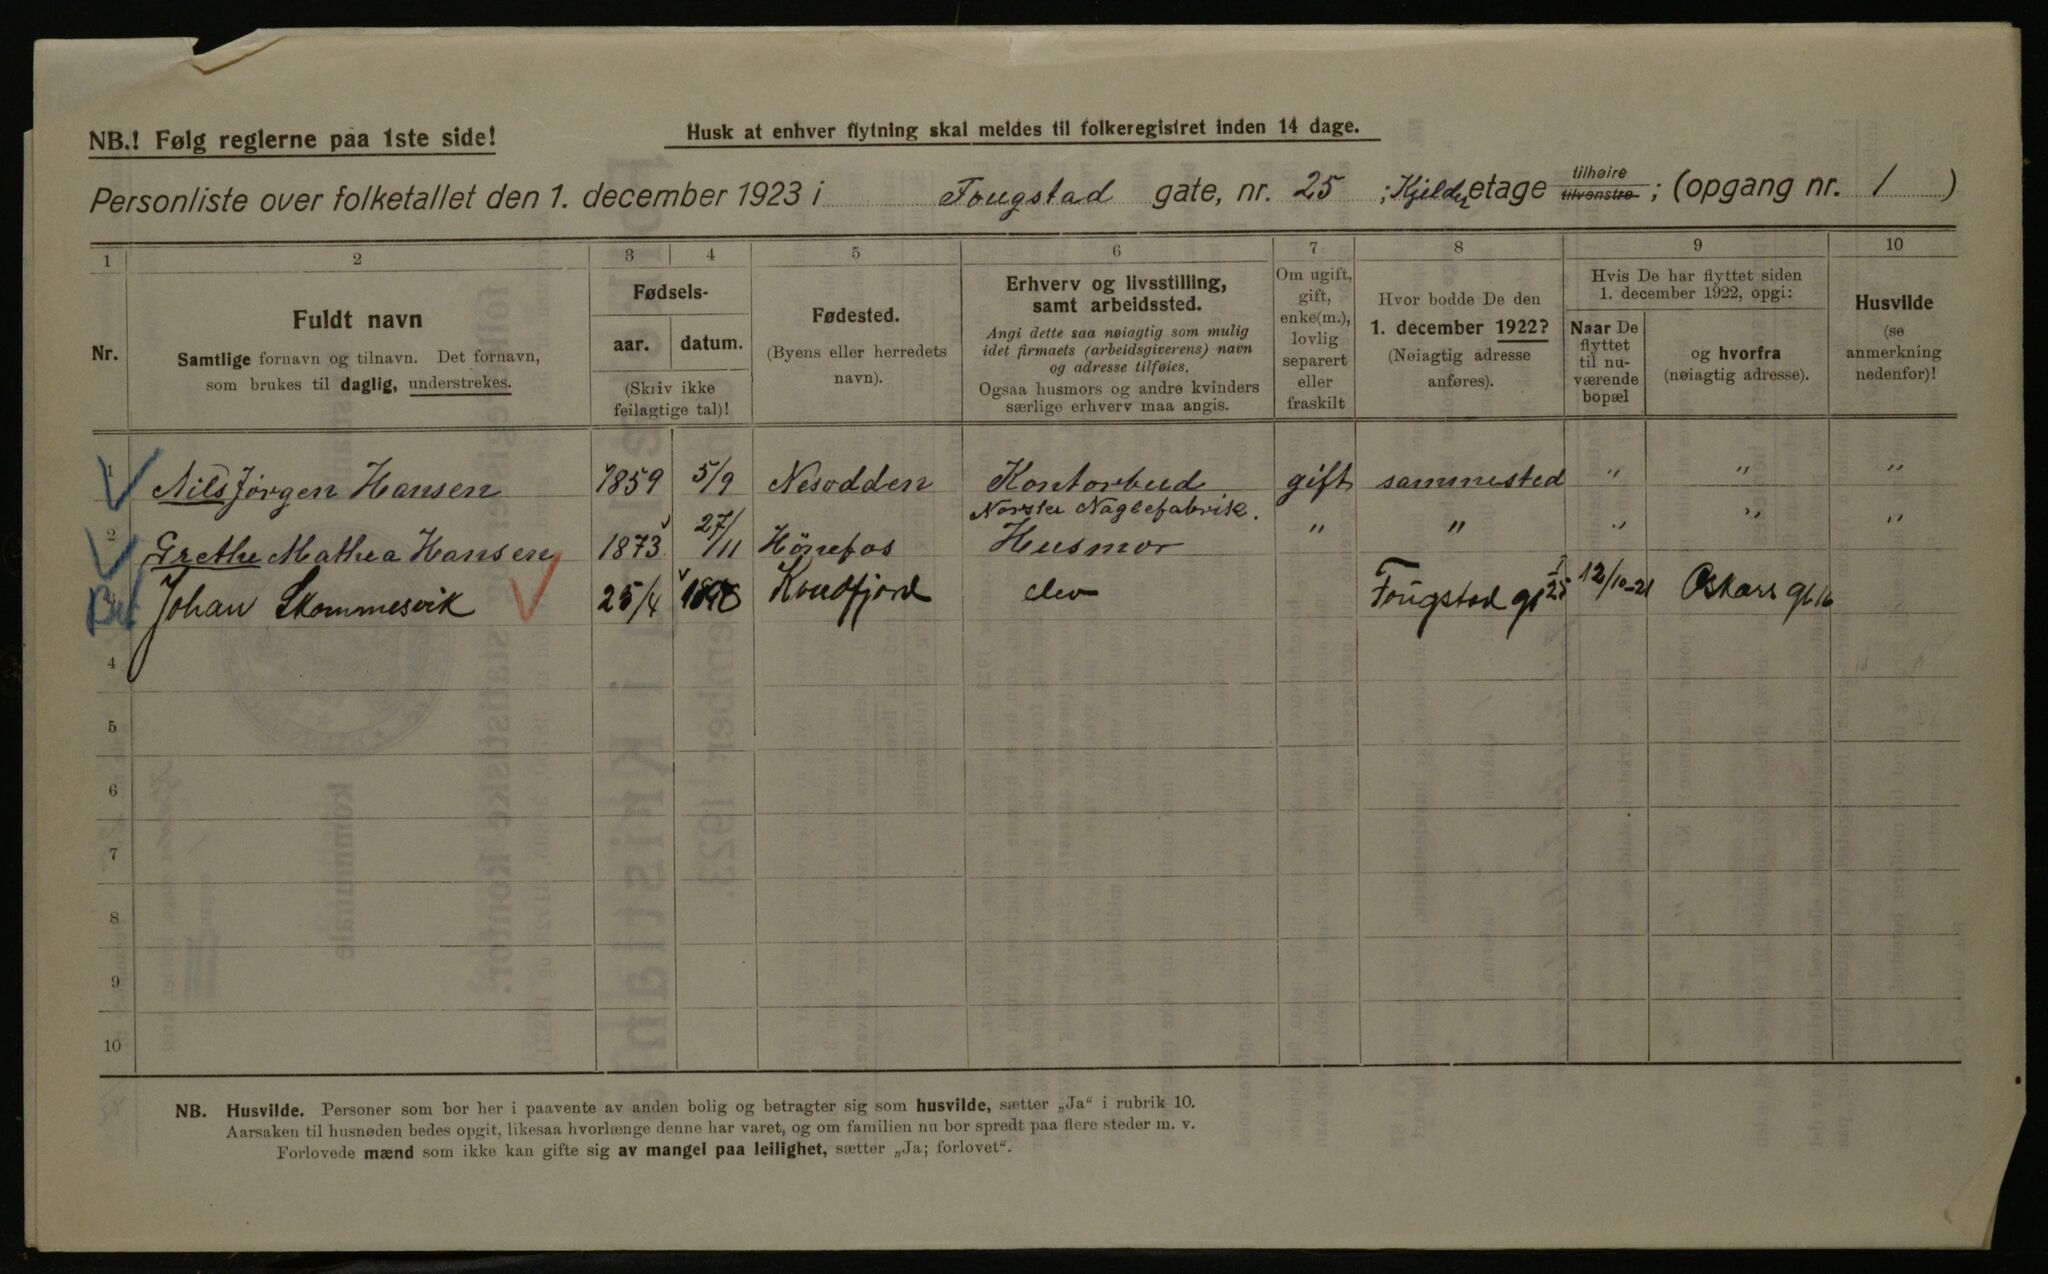 NB.! Følg reglerne paa 1ste side!
Husk at enhver flytning skal meldes til folkeregistret inden 14 dage.
Personliste over folketallet den 1. december 1923 i Fougstad gate, nr. 25 ; Kjelder etage tilhøire tilvenstre ; (opgang nr. 1 )
1 2 3 4 5 6 7 8 9 10
Nr.
Fuldt navn
Samtlige fornavn og tilnavn. Det fornavn,
som brukes til daglig, understrekes.
Fødsels-
aar. datum.
(Skriv ikke
feilagtige tal)!
Fødested.
(Byens eller herredets
navn).
Erhverv og livsstilling,
samt arbeidssted.
Angi dette saa nøiagtig som mulig
idet firmaets (arbeidsgiverens) navn
og adresse tilføies.
Ogsaa husmors og andre kvinders
særlige erhverv maa angis.
Om ugift,
gift,
enke(m.),
lovlig
separert
eller
fraskilt
Hvor bodde De den
1. december 1922?
(Nøiagtig adresse
anføres).
Hvis De har flyttet siden
1. december 1922, opgi:
Naar De
flyttet
til nu-
værende
bopæl
og hvorfra
(nøiagtig adresse).
Husvilde
(se
anmerkning
nedenfor)!
1 Nils Jørgen Hansen 1859 5/9 Nesodden Kontorbud gift sammested " " "
Norske Naglefabrik.
2 Grethe Mathea Hansen 1873 27/11 Hönefos Husmor " " " " "
Johan Skommesvik 25/4 Kvedfjord elev Fougstad gt 25 12/10-21 Oskars gt 16
4
5
6
7
8
9
10
NB. Husvilde. Personer som bor her i paavente av anden bolig og betragter sig som husvilde, sætter „Ja" i rubrik 10.
Aarsaken til husnøden bedes opgit, likesaa hvorlænge denne har varet, og om familien nu bor spredt paa flere steder m. v.
Forlovede mænd som ikke kan gifte sig av mangel paa leilighet, sætter „Ja; forlovet".